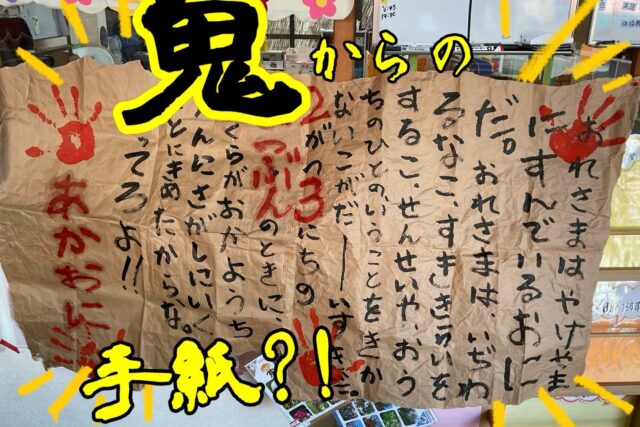 鬼からの
おれさまはやけやま
にすんでいるお〜に
だ。おれさまは、いぢわ
るなこ、すききらいを
するこ、せんせいや、おう
ちのひとのいうことをきか
ないこがだーーいすきだ。
2がつ3にちの
つぶんのときに、
くらがおかようち
んにさがしにいく
とにきめたからな。
ってろよ!!
あかおに
手紙?!